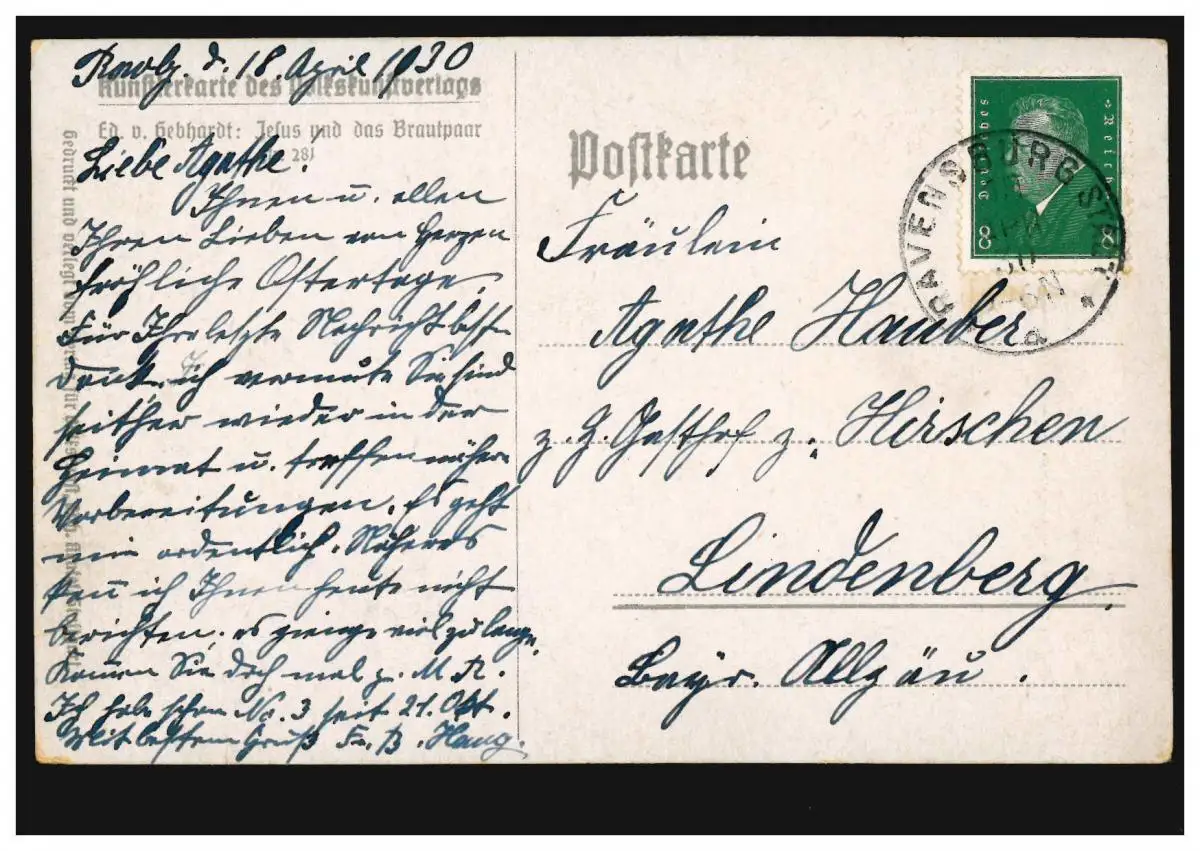 Ravbg. d. 18. April 1930
Künstlerkarte des Volkskunstverlags
Ed. v. Gebhardt: Jesus und das Brautpaar
281
Liebe Agathe!
Ihnen u. allen
Ihren Lieben von Herzen
fröhliche Ostertage.
Für Ihre letzte Nachricht besten
Dank, ich vermute Sie sind
seither wieder in der
Heimat u. treffen nähere
Vorbereitungen. Es geht
mir ordentlich. Näheres
kann ich Ihnen heute nicht
berichten, es gienge viel zu lange.
Kommen Sie doch mal z. M. R.
Ich habe schon No. 3 seit 21. Okt.
Mit bestem Gruß Fr. B. Haug.
Gedruckt und verlegt vom
Postkarte
Fräulein
Agathe Hauber
z. Z. Gasthof z. Hirschen
Lindenberg
Bayr. Allgäu.
Deutsches Reich
8 8
RAVENSBURG STADT